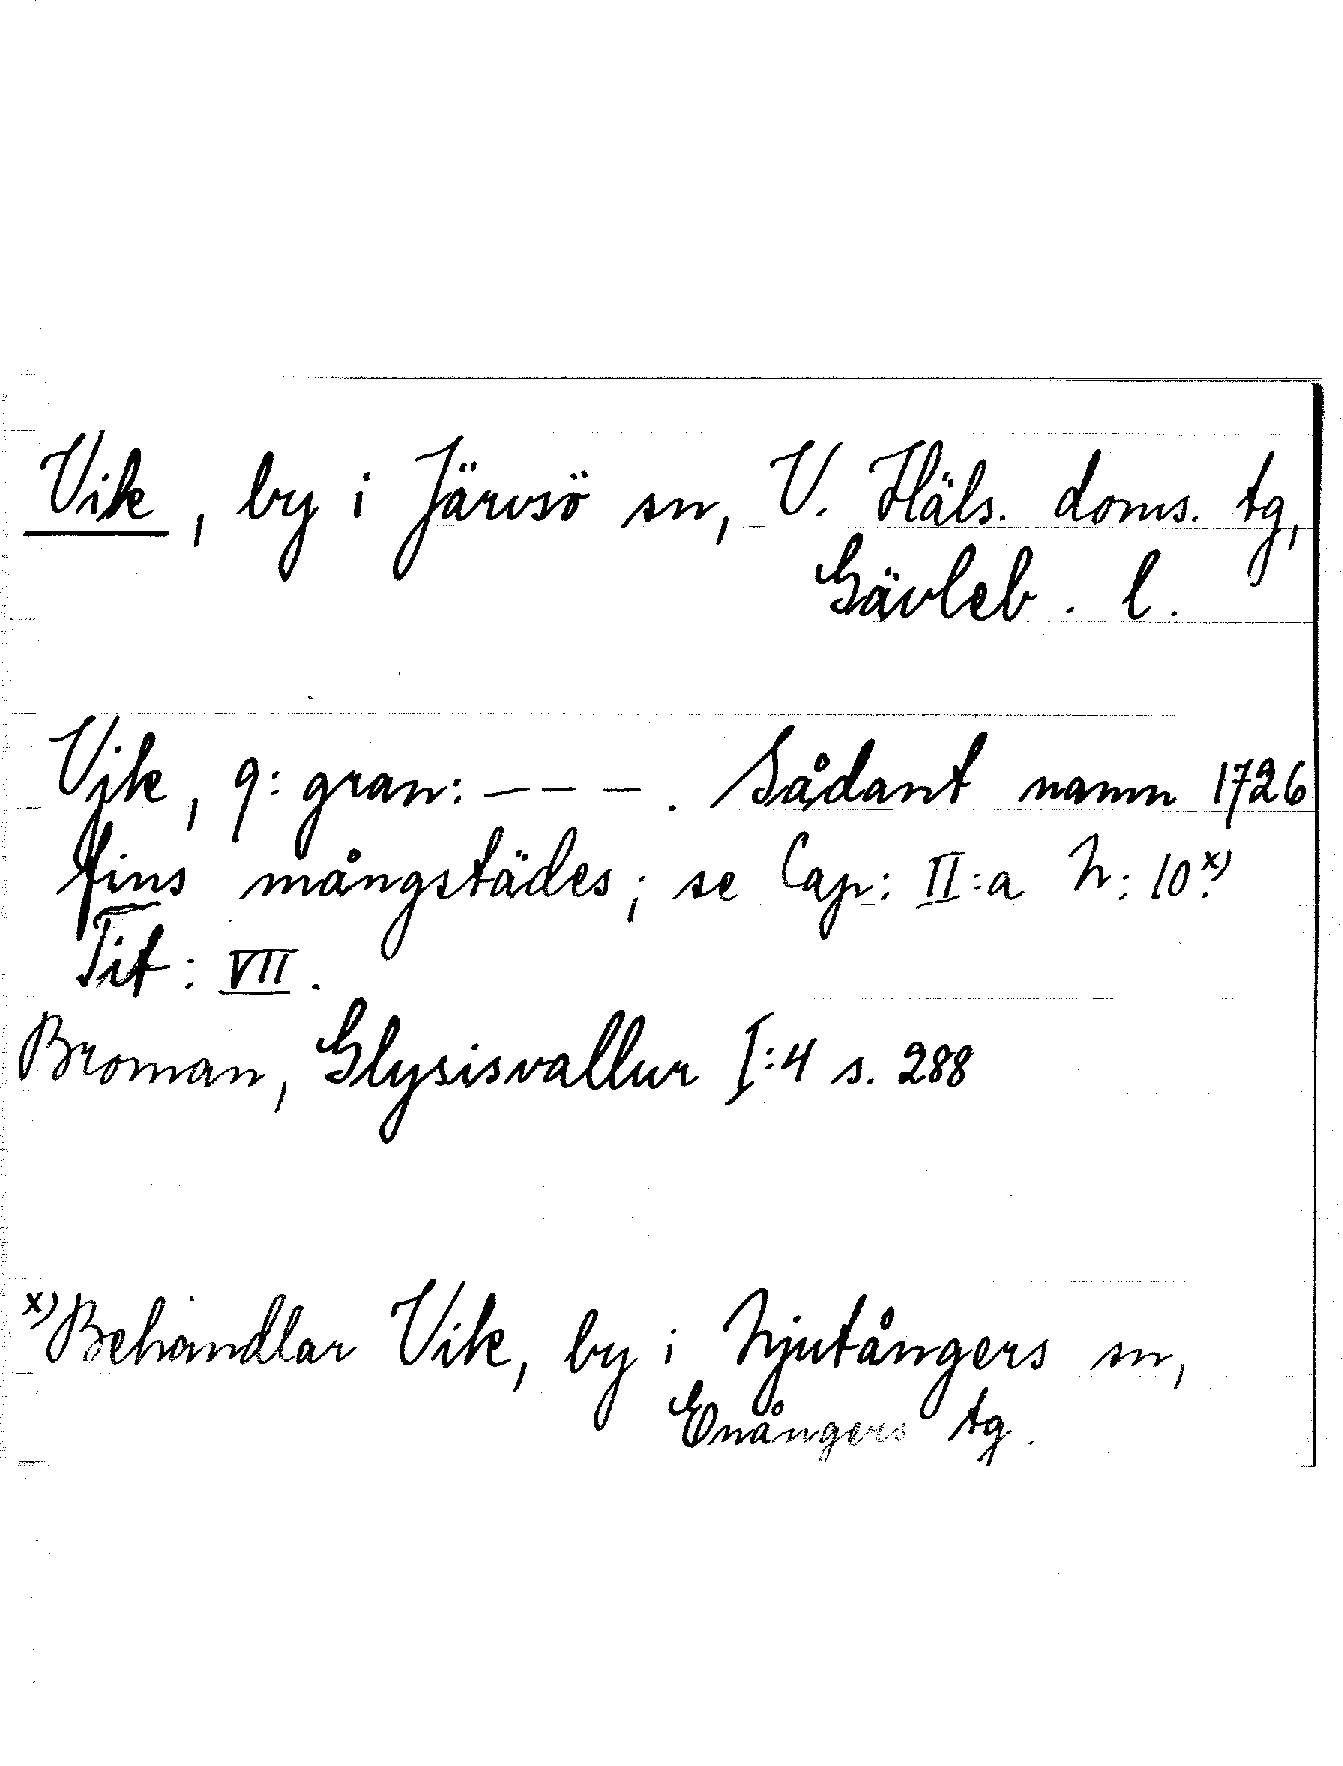 Vik, by i Järvsö sn, V. Häls. doms. tg,
Gävleb. l.
Vjk, q: gran: – – – . Sådant namn 1726
fins mångstädes; se Cap: II:a N: 10.x)
Tit: VII.
Broman, Glysisvallur I:4 s. 288
x) Behandlar Vik, by i Njutångers sn,
Enångers tg.